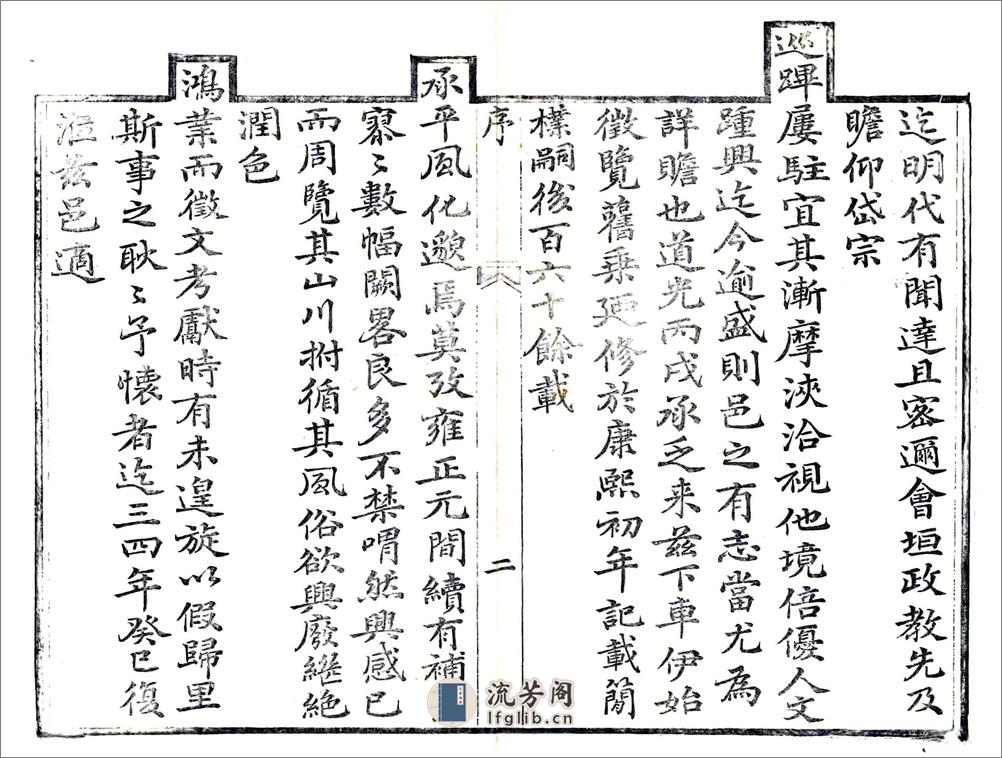 迄明代有聞達且密邇會垣政教先及
瞻仰岱宗
巡蹕屢駐宜其漸摩浹洽視他境倍優人文
踵興迄今逾盛則邑之有志當尤為
詳贍也道光丙戌承乏来兹下車伊始
徵覽舊乘廼修於康熙初年記載簡
樸嗣後百六十餘載
序
二
承平風化邈焉莫攷雍正元間續有補
寥〻數幅闕畧良多不禁喟然興感已
而周覽其山川拊循其風俗欲興廢繼絶
潤色
鴻業而徵文考獻時有未遑旋以假歸里
斯事之耿〻予懷者迄三四年癸巳復
涖兹邑適
流芳阁
lfglib.cn